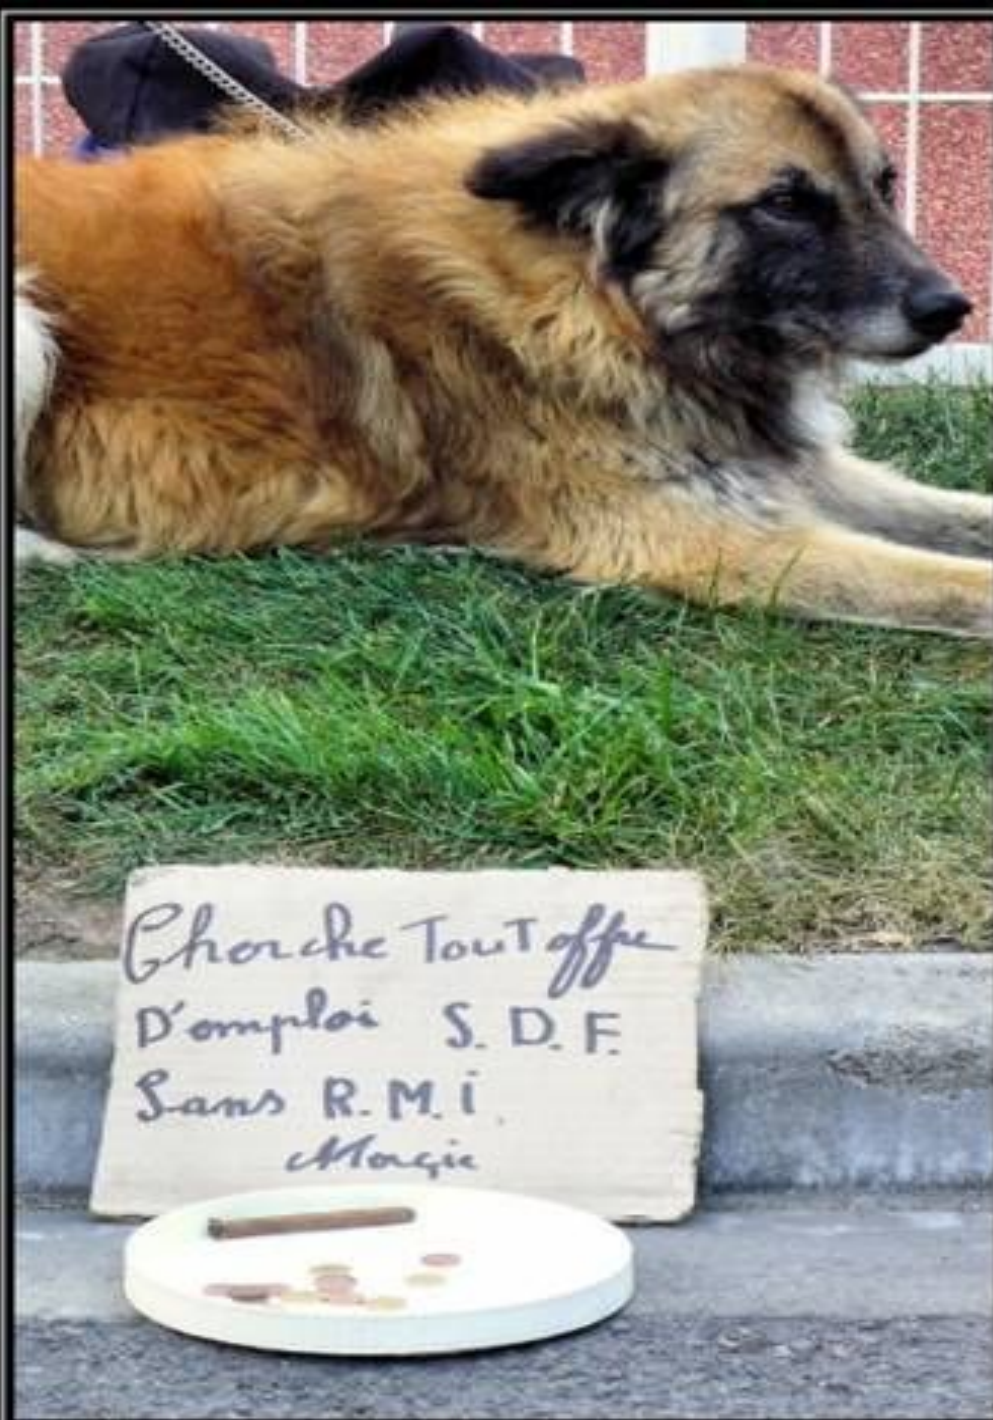 Cherche Tout offre
D'emploi S. D. F.
Sans R. M. i.
Merçie